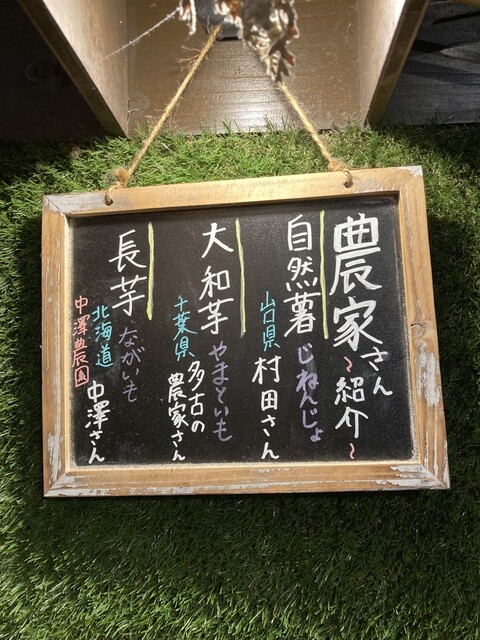 農家さん
~紹介~
自然薯
じねんじょ
山口県
村田さん
大和芋
やまといも
千葉県
多古の
農家さん
長芋
ながいも
北海道
中澤農園
中澤さん